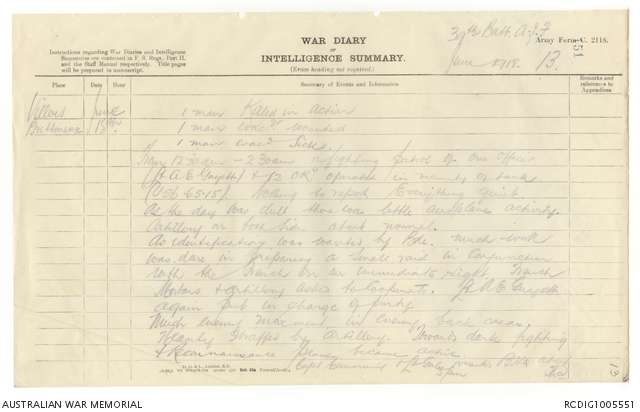 WAR DIARY
or
INTELLIGENCE SUMMARY.
(Erase heading not required.)
Instructions regarding War Diaries and Intelligence
Summaries are contained in F. S. Regs., Part II.
and the Staff Manual respectively. Title pages
will be prepared in manuscript.
Batt. A.I.F.
June 1918. 13.
Army Form C. 2118.
51
Place Date Hour Summary of Events and Information Remarks and references to Appendices
Villers June 1 man Killed in action
1 man evac'd wounded
1 man evac'd Sick
From 12.30am - 2.30am a fighting patrol of one officer
(Lt A E) & 12 O.R's operated in vicinity of tank
Nothing to report Everything quiet
As the day was dull there was little aeroplane activity.
Artillery on both sides about normal.
As identification was wanted by Bde. much work
was done in preparing a small raid in conjunction
with the French on our immediate right. French
Mortars & artillery asked to cooperate. Lt A E
again put in charge of party
Much enemy movement in enemy back areas.
Towards dark fighting
& Reconnaissance planes became active
Capt
13
AUSTRALIAN WAR MEMORIAL
RCDIG1005551